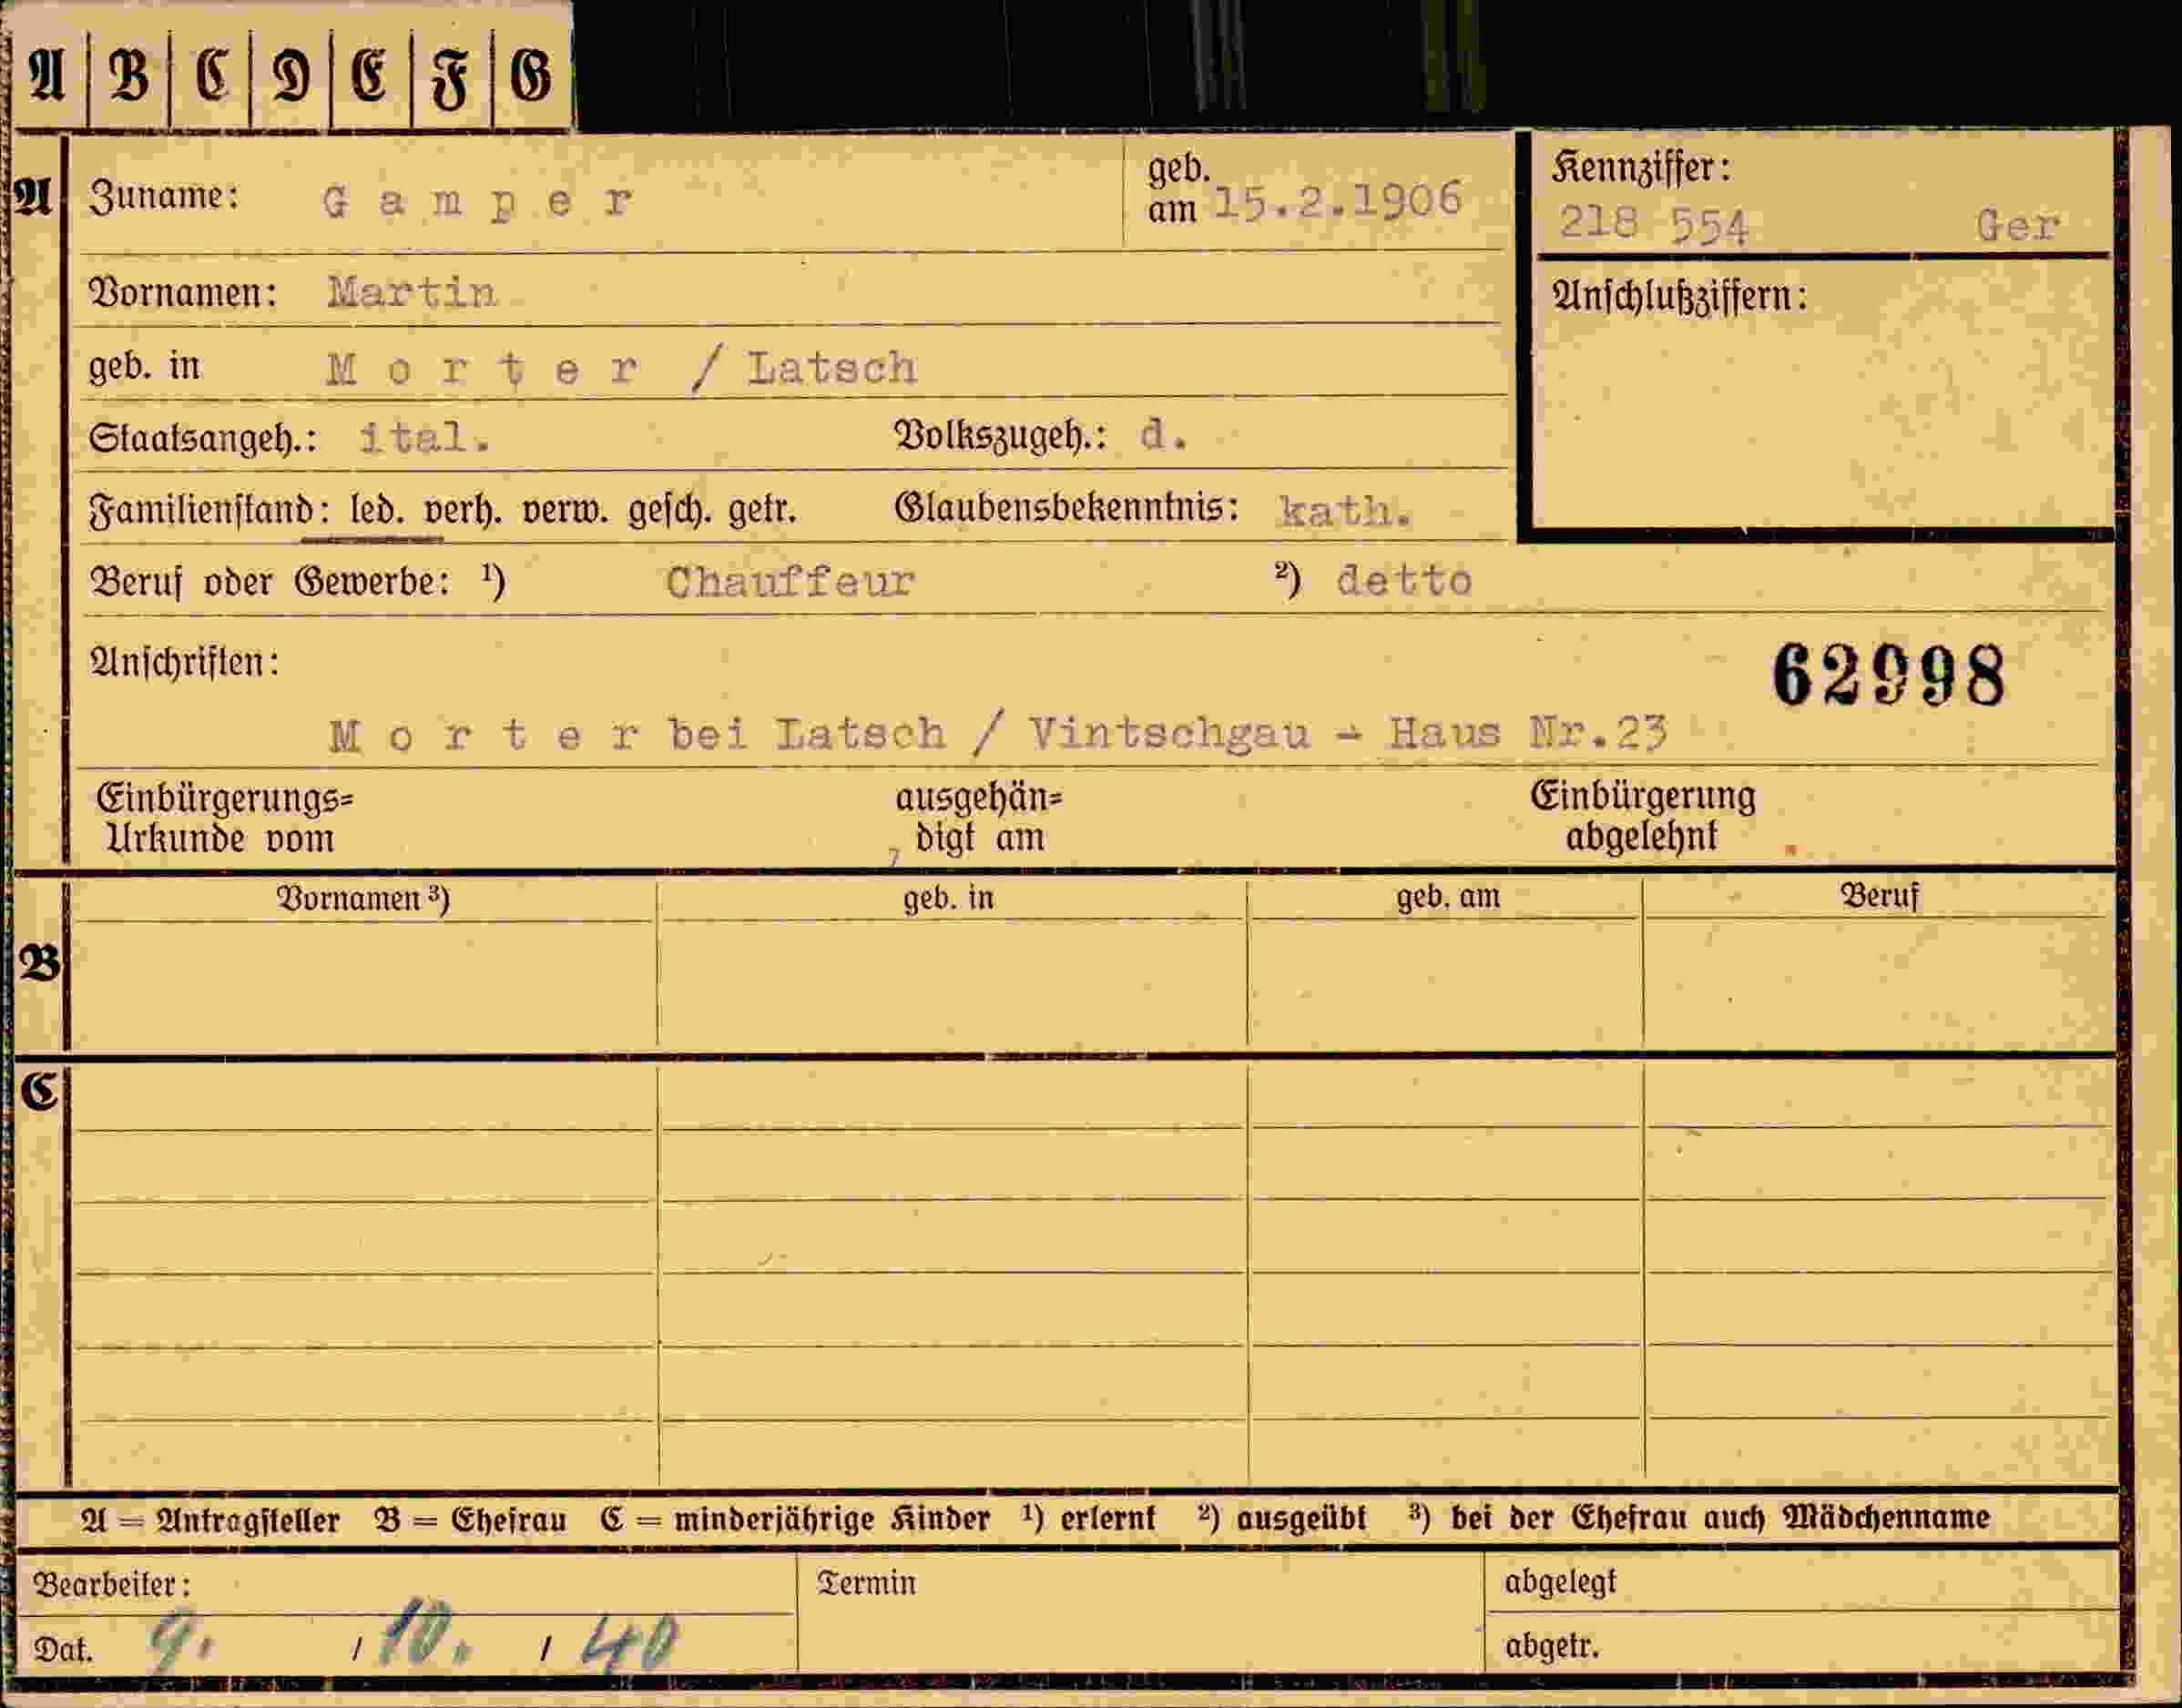 A B C D E F G
A Zuname: Gamper geb. am 15.2.1906 Kennziffer: 218 554 Ger
Vornamen: Martin Anschlußziffern:
geb. in Morter / Latsch
Staatsangeh.: ital. Volkszugeh.: d.
Familienstand: led. verh. verw. gesch. getr. Glaubensbekenntnis: kath.
Beruf oder Gewerbe: ¹) Chauffeur ²) detto
Anschriften: 62998
Morter bei Latsch / Vintschgau - Haus Nr.23
Einbürgerungs= ausgehän= Einbürgerung
Urkunde vom digt am abgelehnt
Vornamen ³) geb. in geb. am Beruf
B
C
A = Antragsteller B = Ehefrau C = minderjährige Kinder ¹) erlernt ²) ausgeübt ³) bei der Ehefrau auch Mädchenname
Bearbeiter: Termin abgelegt
Dat. 9. / 10. / 40 abgetr.